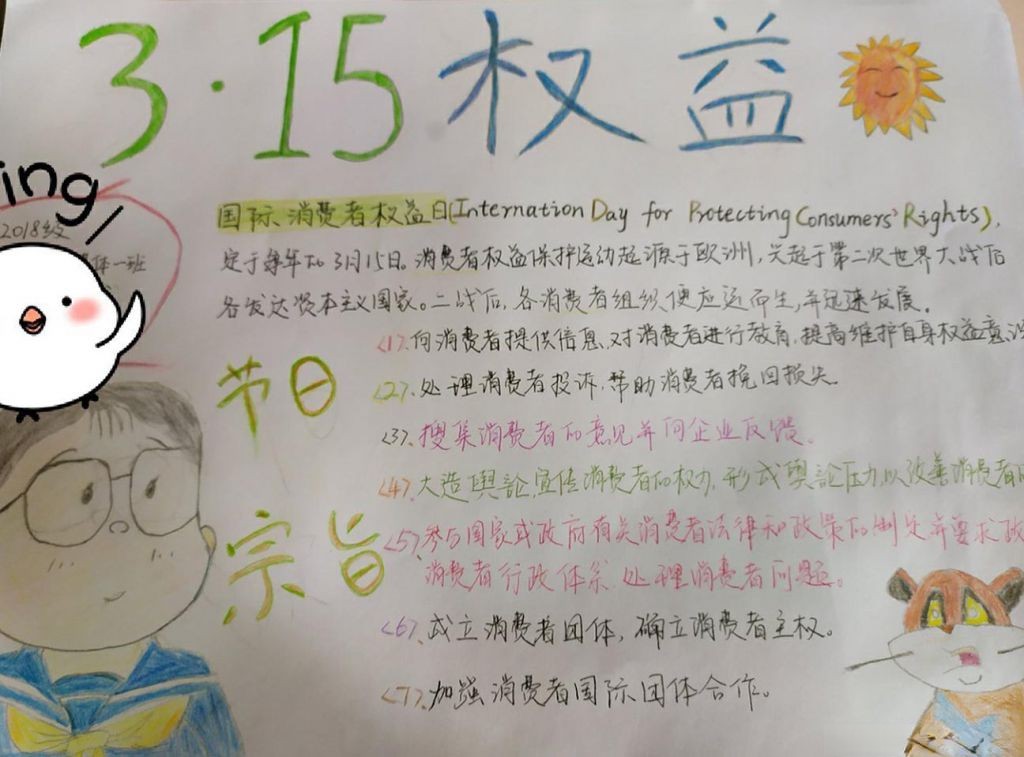 3·15权益
ing
2018级
体一班
国际消费者权益日(Internation Day for Protecting Consumers' Rights),
定于每年的3月15日。消费者权益保护运动起源于欧洲,兴起于第二次世界大战后
各发达资本主义国家。二战后,各消费者组织便应运而生,并迅速发展。
节日
宗旨
<1>.向消费者提供信息,对消费者进行教育,提高维护自身权益意识
<2>.处理消费者投诉,帮助消费者挽回损失.
<3>.搜集消费者的意见并向企业反馈.
<4>.大造舆論,宣传消费者的权力,形式舆論压力,以改善消费者的
<5>.参与国家或政府有关消费者法律和政策的制定并要求政
消费者行政体系,处理消费者问题。
<6>.成立消费者团体,确立消费者主权。
<7>.加强消费者国际团体合作。